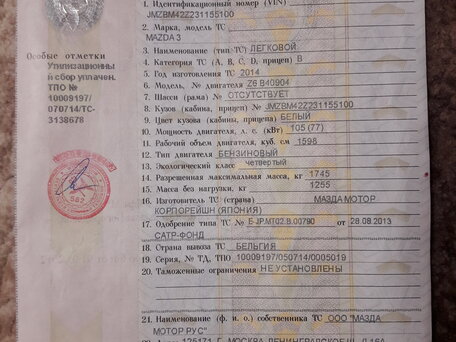 1. Идентификационный номер (VIN)
JMZBM42Z231155100
2. Марка, модель ТС
MAZDA 3
3. Наименование (тип ТС) ЛЕГКОВОЙ
4. Категория ТС (A, B, C, D, прицеп) B
5. Год изготовления ТС 2014
6. Модель, № двигателя Z6 B40904
7. Шасси (рама) № ОТСУТСТВУЕТ
8. Кузов (кабина, прицеп) № JMZBM42Z231155100
9. Цвет кузова (кабины, прицепа) БЕЛЫЙ
10. Мощность двигателя, л. с. (кВт) 105 (77)
11. Рабочий объем двигателя, куб. см 1598
12. Тип двигателя БЕНЗИНОВЫЙ
13. Экологический класс четвертый
14. Разрешенная максимальная масса, кг 1745
15. Масса без нагрузки, кг 1255
16. Изготовитель ТС (страна) МАЗДА МОТОР
КОРПОРЕЙШН (ЯПОНИЯ)
17. Одобрение типа ТС № E-JP.MT02.B.00790 от 28.08.2013
САТР-ФОНД
18. Страна вывоза ТС БЕЛЬГИЯ
19. Серия, № ТД, ТПО 10009197/050714/0005019
20. Таможенные ограничения НЕ УСТАНОВЛЕНЫ
21. Наименование (ф. и. о.) собственника ТС ООО "МАЗДА
МОТОР РУС"
125171, Г. МОСКВА,
Особые отметки
Утилизационны
й сбор уплачен.
ТПО №
10009197/
070714/ТС-
3138678